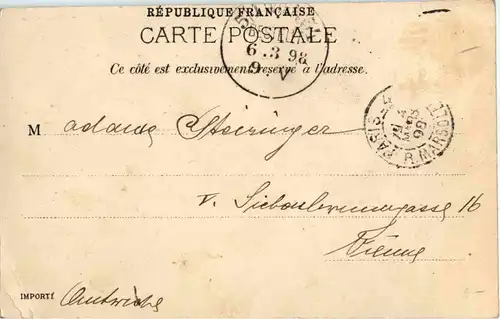 RÉPUBLIQUE FRANÇAISE
CARTE POSTALE
6.3.98
9.V
Ce côté est exclusivement réservé à l'adresse.
PARIS
R. MARSOLLIER
Madame Steininger
V. Siebenbrunnengasse 16
Vienne
IMPORTÉ
Autriche